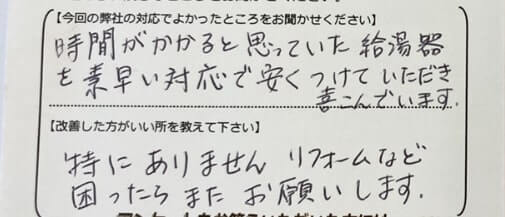 【今回の弊社の対応でよかったところをお聞かせください】
時間がかかると思っていた給湯器
を素早い対応で安くつけていただき
喜こんでいます.
【改善した方がいい所を教えて下さい】
特にありません リフォームなど
困ったらまたお願いします.